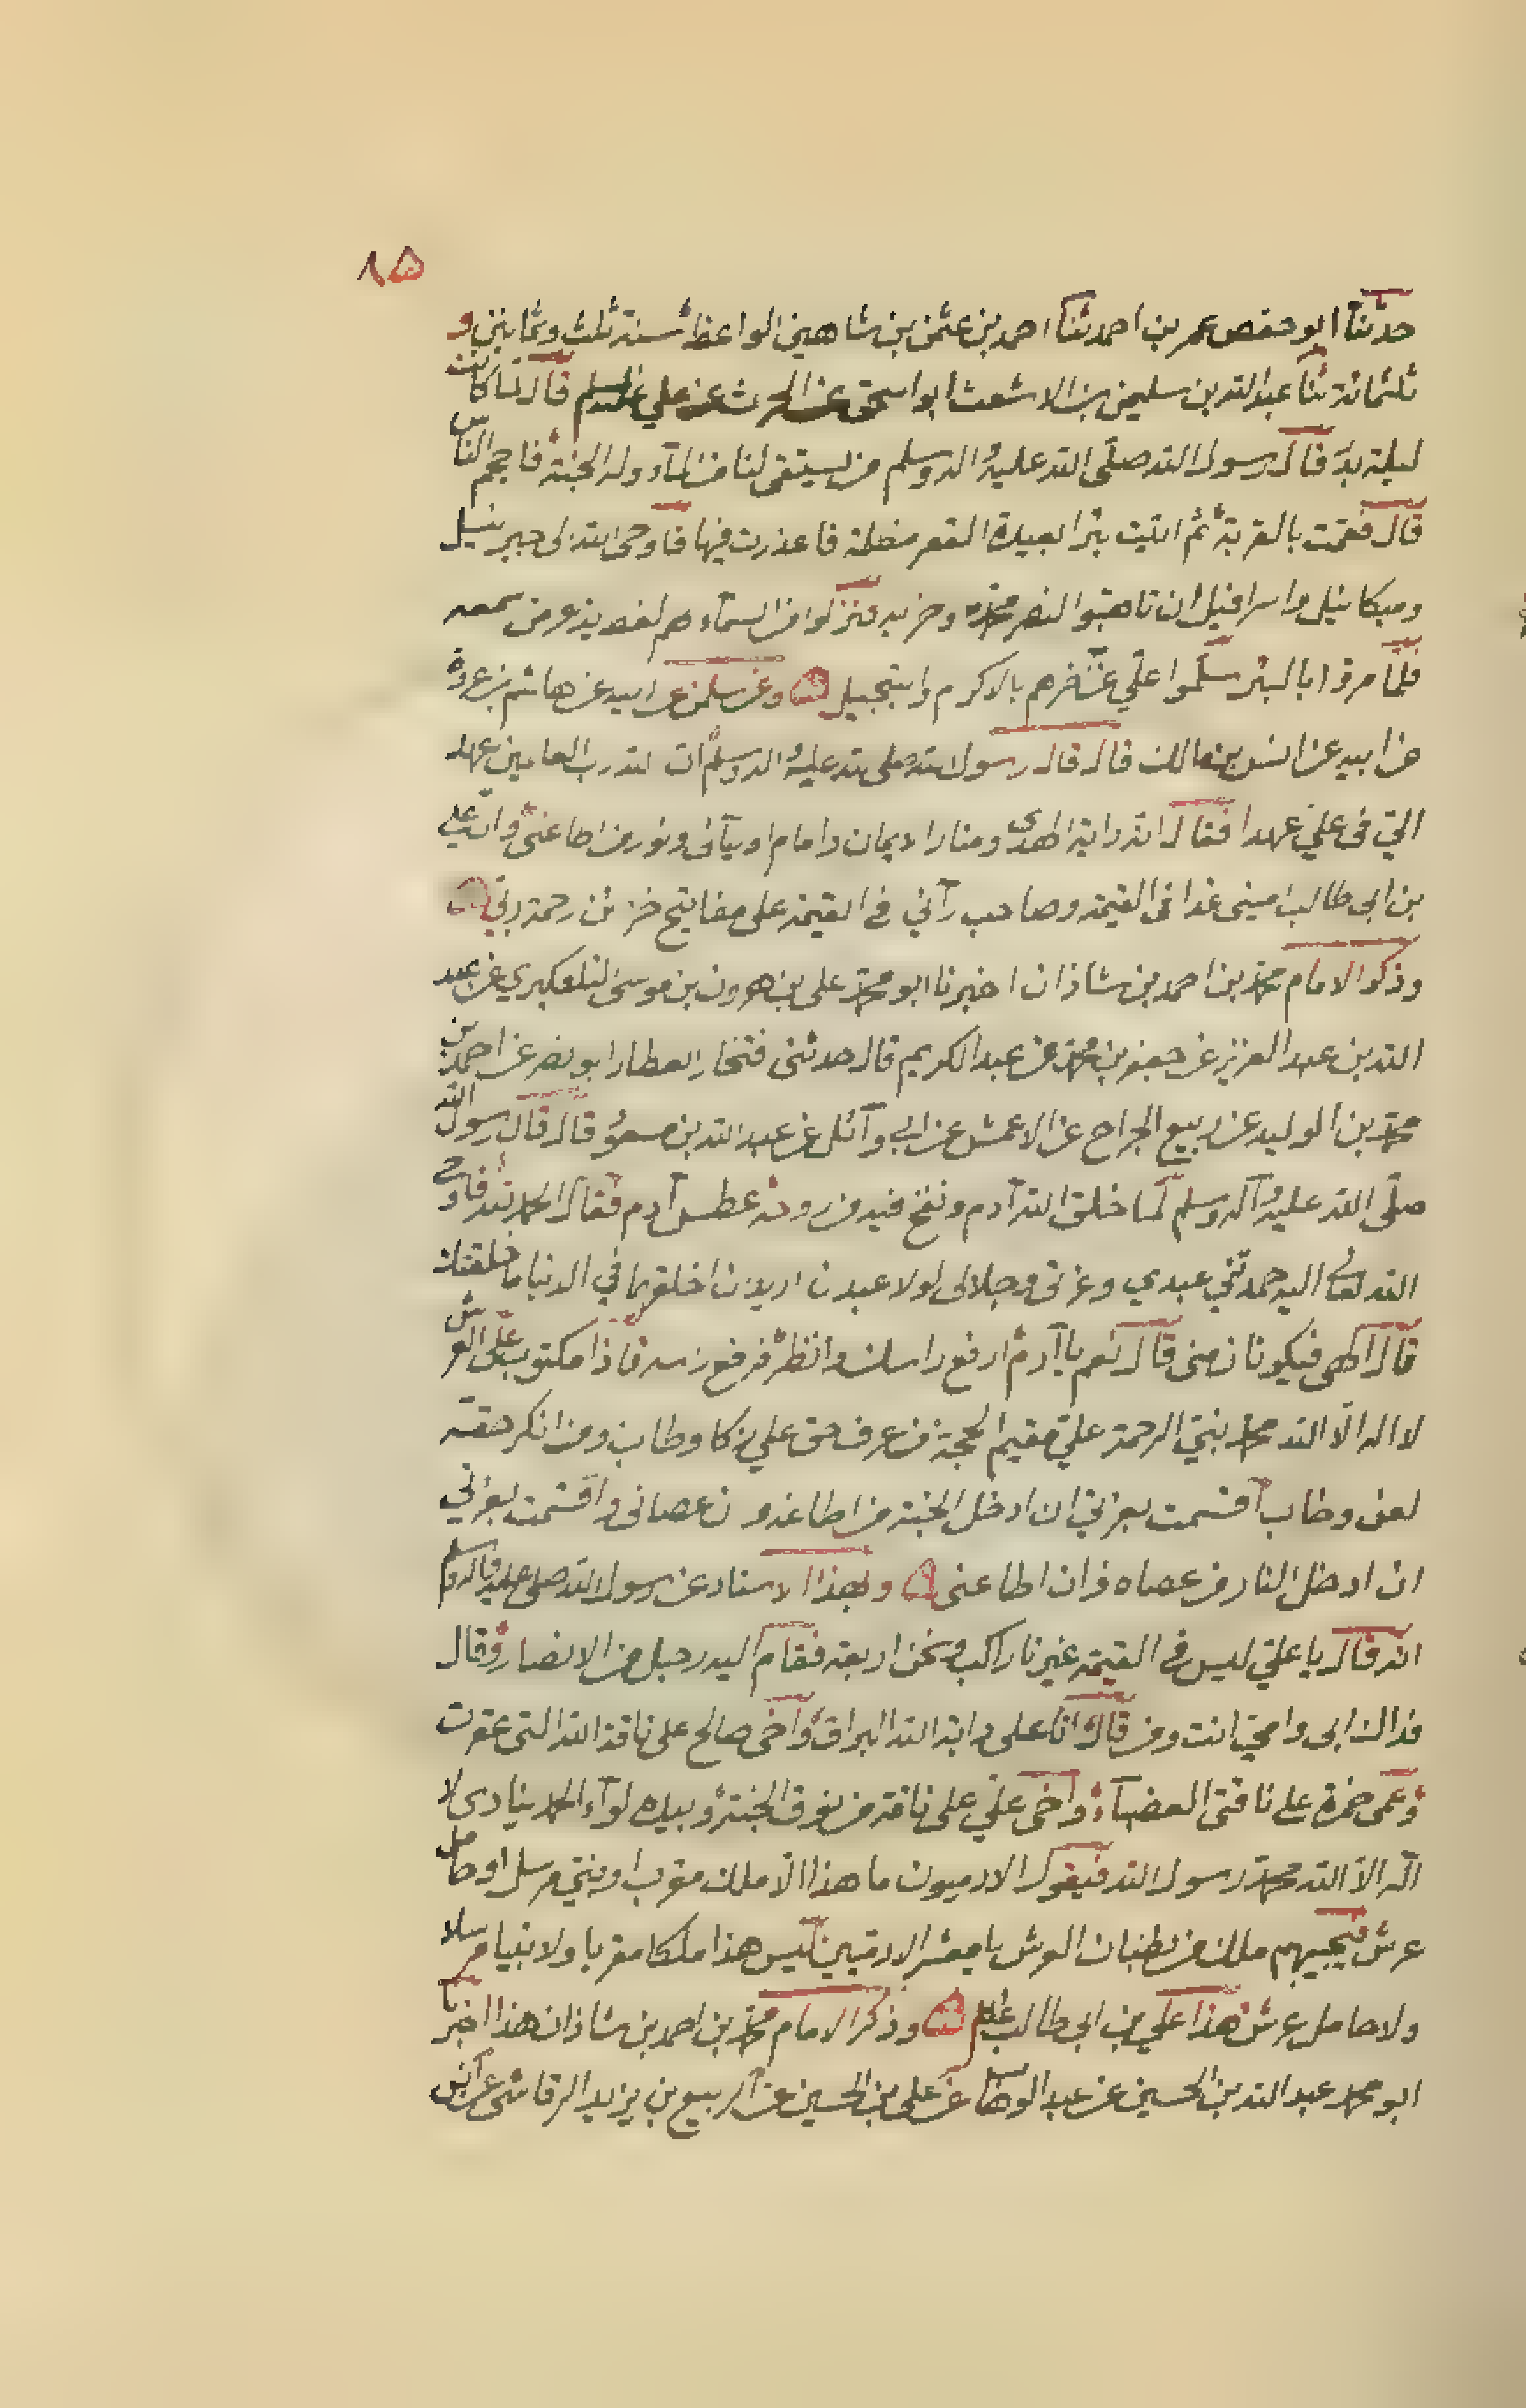 ٨٥
حدثنا ابو حفص عمر بن احمد ثنا احمد بن عثمن بن شاهين الواعظ سنة ثلث وثمانين و
ثلثمائة ثنا عبد الله بن سليمن بن الاشعث ابو اسحق عن الحرث عن علي عليه السلم قال لما كانت
ليلة بدر قال رسول الله صلى الله عليه واله وسلم من يستقى لنا من المآء وله الجنة فاحجم الناس
قال فقمت بالقربة ثم اتيت بئرا بعيدة القعر مظلمة فاعذرت فيها فاوحى الله الى جبرئيل
وميكائيل واسرافيل ان تاهبوا لنصر محمد وحزبه فنزلوا من السمآء لهم لغط يذعر من سمعه
فلما مروا بالبئر سلموا علي عن اخرهم بالاكرم والتبجيل وعن سلمن عن ابيه عن هاشم بن عروة
عن ابيه عن انس بن مالك قال قال رسول الله صلى الله عليه واله وسلم ان الله رب العالمين عهد
الي في علي عهدا فقال انه راية الهدى ومنار الايمان وامام اوليآئى ونور من اطاعنى وان علي
بن ابى طالب امينى غدا فى القيمة وصاحب رآيتي في القيمة على مفاتيح خزائن رحمة ربي
وذكر الامام محمد بن احمد بن شاذان اخبرنا ابو محمد على بن هرون بن موسى التلعكبري عن عبد
الله بن عبد العزيز عن جعفر بن محمد عن عبد الكريم قال حدثنى فتخار العطار ابو نصر عن احمد بن
محمد بن الوليد عن ربيع الجراح عن الاعمش عن ابي وآئل عن عبد الله بن مسعود قال قال رسول الله
صلى الله عليه وآله وسلم لما خلق الله آدم ونفخ فيه من روحه عطس آدم فقال الحمد لله فاوحى
الله تعالى اليه حمدتني عبدي وعزتى وجلالى لولا عبدان اريد ان اخلقهما في الدنيا ما خلقتك
قال الهى فيكونان منى قال نعم يا آدم ارفع راسك وانظر فرفع راسه فاذا مكتوب على العرش
لا اله الا الله محمد نبي الرحمة علي مقيم الحجة من عرف حق علي زكا وطاب ومن انكر حقه
لعن وخاب اقسمت بعزتي ان ادخل الجنة من اطاعه وان عصانى واقسمت بعزتي
ان ادخل النار من عصاه وان اطاعنى وبهذا الاسناد عن رسول الله صلى عليه واله وسلم
انه قال يا علي ليس في القيمة غيرنا راكب ونحن اربعة فقام اليه رجل من الانصار وقال
فداك ابى وامي انت ومن قال انا على دابة الله البراق واخى صالح على ناقة الله التى عقرت
وعمى حمزة على ناقتى العضبآء واخى علي على ناقة من نوق الجنة وبيده لوآء الحمد ينادى لا
اله الا الله محمد رسول الله فيقول الادميون ما هذا الا ملك مقرب او نبي مرسل او حامل
عرش فيجيبهم ملك من بطنان العرش يا معشر الادميين ليس هذا ملكا مقربا ولا نبيا مرسلا
ولا حامل عرش هذا علي بن ابى طالب عليه السلم وذكر الامام محمد بن احمد بن شاذان هذا اخبرنا
ابو محمد عبد الله بن الحسين عن عبد الوهاب عن على بن الحسين عن الربيع بن يزيد الرقاشى عن انس